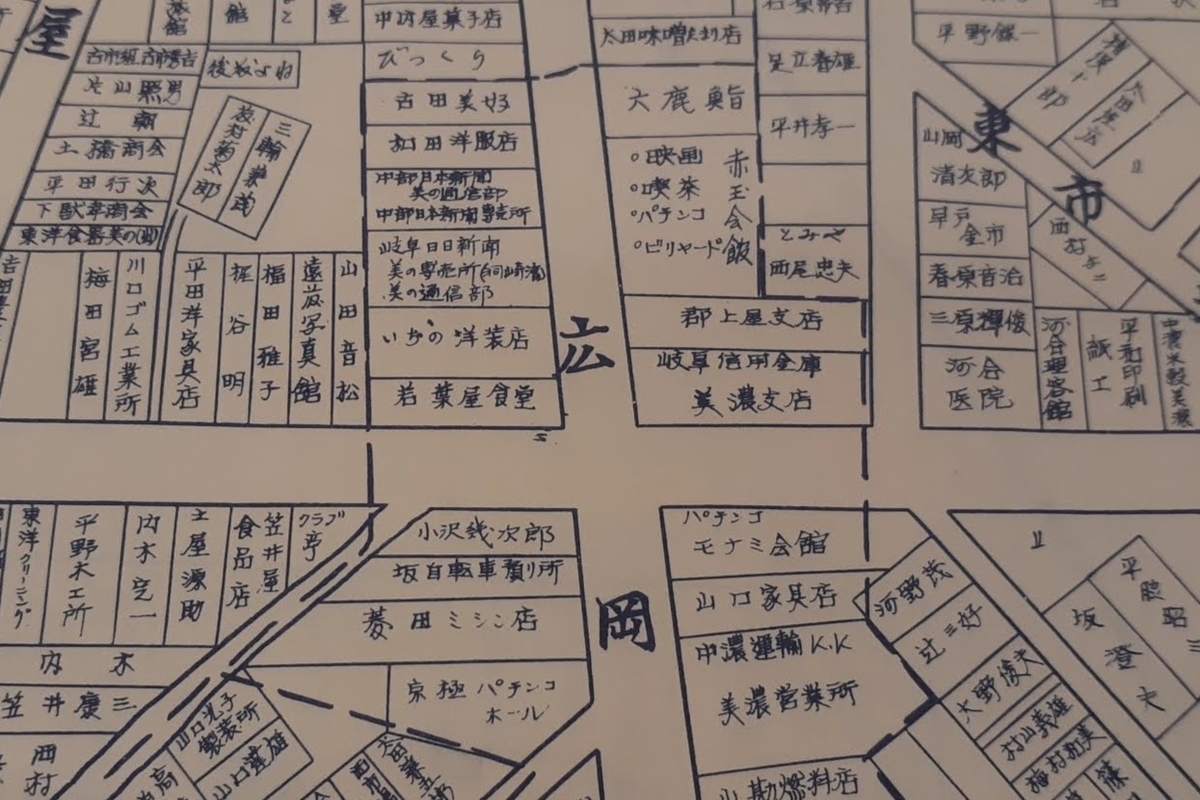 屋
中村屋菓子店
びっくり
古田美好
和田洋服店
中部日本新聞
美の通信部
中部日本新聞専売所
岐阜日日新聞
美の専売所
美の通信部
いちの洋装店
若葉屋食堂
後藤よね
片山照男
辻 朝
土橋商会
平田行次
三輪兼尚
梅田宮雄
川口ゴム工業所
平田洋家具店
梶谷明
福田雅子
遠藤写真館
山田音松
太田味噌たまり店
大鹿鮨
○映画
○喫茶
○パチンコ
○ビリヤード
赤玉会館
郡上屋支店
岐阜信用金庫
美濃支店
足立春雄
平井孝一
とみや
西尾忠夫
広
岡
平野銀一
東
市
山岡
清次郎
早戸
金市
春原音治
三原輝俊
河合
医院
河合理容館
紙工
平和印刷
東洋クリーニング
平野木工所
内木完一
土屋源助
笠井屋
食品店
クラブ
亭
内木
笠井慶三
小沢幾次郎
坂自転車預り所
菱田ミシン店
京極パチンコ
ホール
山口光子
製装所
山口達雄
パチンコ
モナミ会館
山口家具店
中濃運輸K.K
美濃営業所
山勘燃料店
河野茂
辻三好
大野俊夫
村山義雄
梅村和美
坂澄夫